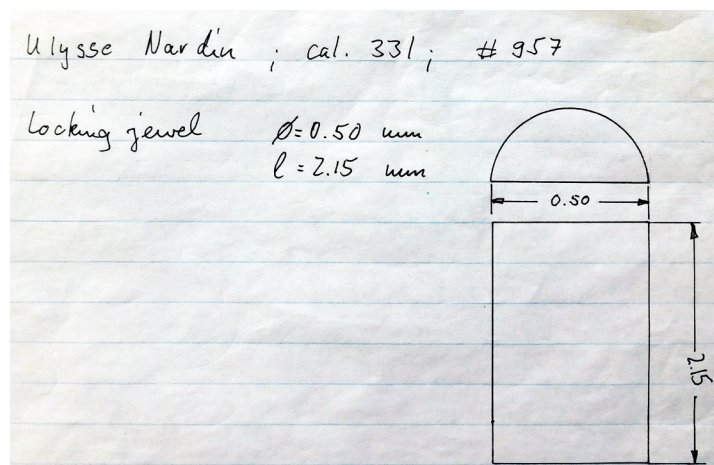 Ulysse Nardin ; cal. 331 ; # 957
Locking jewel ø=0.50 mm
l = 2.15 mm
0.50
2.15